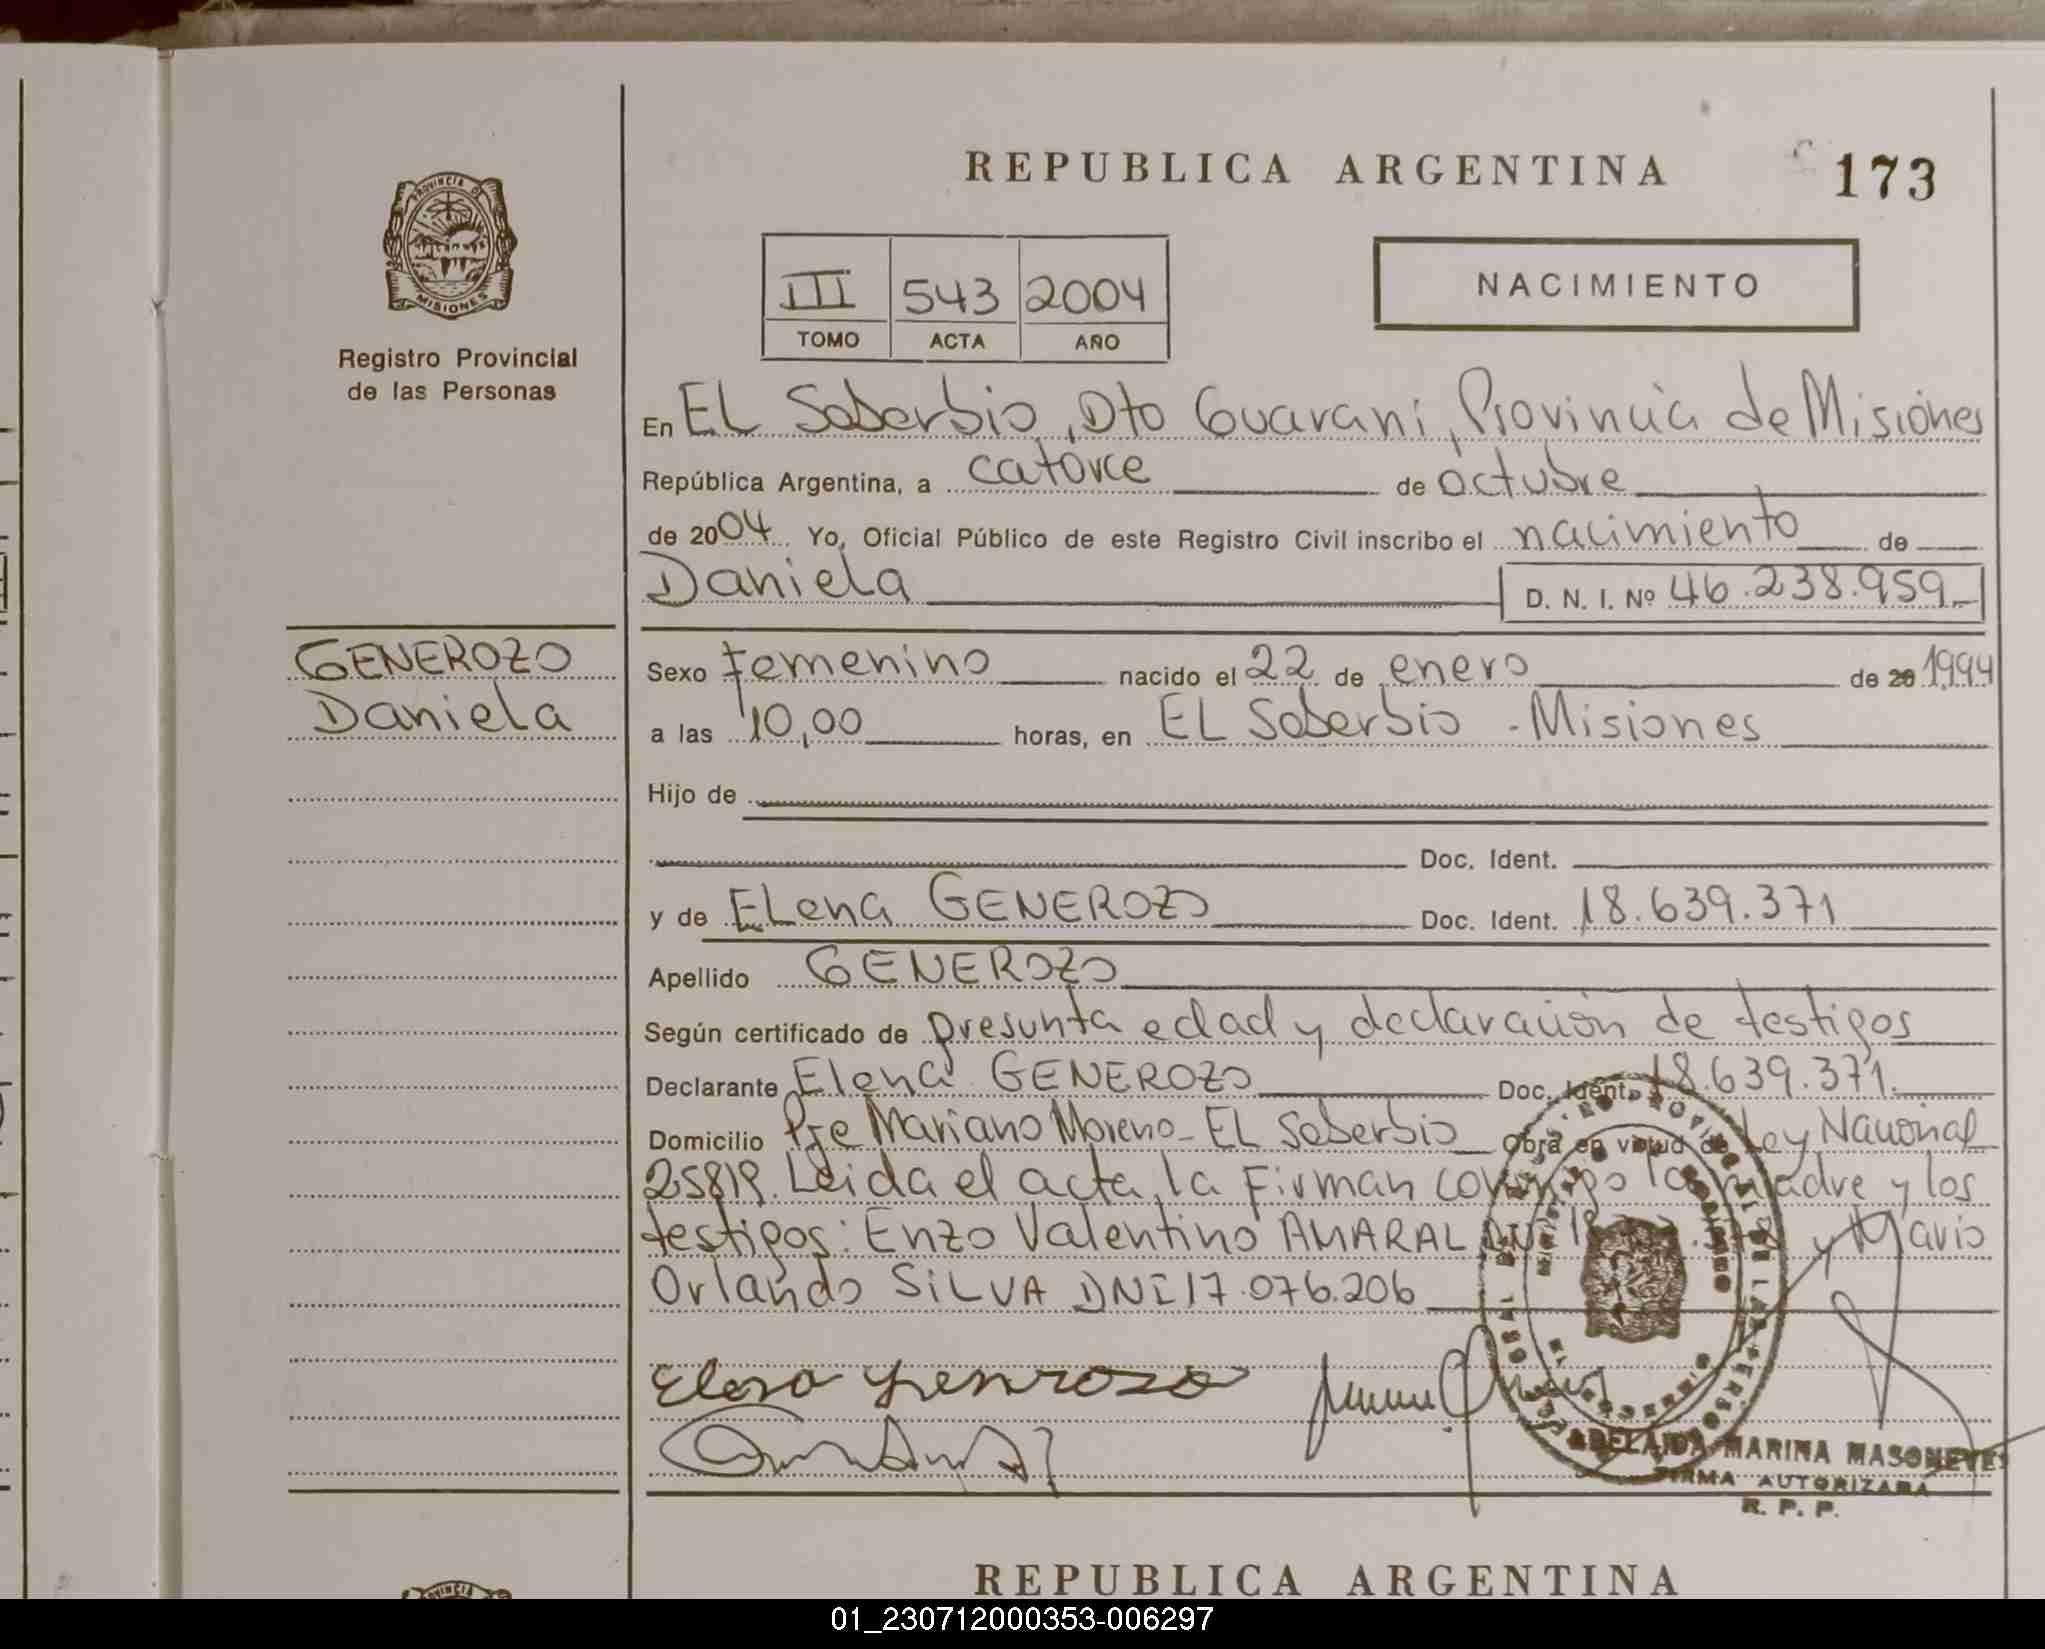 REPUBLICA ARGENTINA
173
PROVINCIA DE
MISIONES
Registro Provincial
de las Personas
III 543 2004
TOMO ACTA AÑO
NACIMIENTO
En EL Soberbio, Dto Guarani, Provincia de Misiones
República Argentina, a catorce de octubre
de 2004 Yo, Oficial Público de este Registro Civil inscribo el nacimiento de
Daniela D. N. I. Nº 46.238.959
GENEROZO
Daniela
Sexo Femenino nacido el 22 de enero de 20 1994
a las 10,00 horas, en EL Soberbio - Misiones
Hijo de
Doc. Ident.
y de ELena GENEROZO Doc. Ident. 18.639.371
Apellido GENEROZO
Según certificado de presunta edad y declaración de testigos
Declarante Elena GENEROZO Doc. Ident. 18.639.371.
Domicilio Pje Mariano Moreno - EL Soberbio Obra en virtud de Ley Nacional
25819. Leida el acta, la Firman conmigo la madre y los
testigos: Enzo Valentino AMARAL DNI 18 y Mario
Orlando SILVA DNI 17.076.206
Elena Generozo
ADELAIDA MARINA MASONEYES
FIRMA AUTORIZADA
R. P. P.
REPUBLICA ARGENTINA
PROVINCIA
01_230712000353-006297